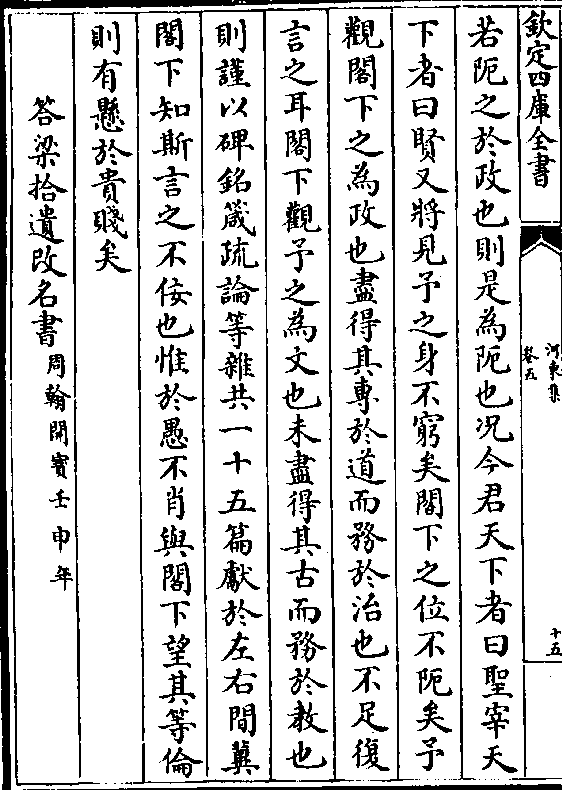 欽定四庫全書
河東集
卷五
十五
若阨之於政也則是為阨也况今君天下者曰聖宰天
下者曰賢又將見予之身不窮矣閣下之位不阨矣予
觀閣下之為政也盡得其專於道而務於治也不足復
言之耳閣下觀予之為文也未盡得其古而務於教也
則謹以碑銘箴疏論等雜共一十五篇獻於左右間冀
閣下知斯言之不佞也惟於愚不肖與閣下望其等倫
則有懸於貴賤矣
答梁拾遺改名書周翰開寳壬申年